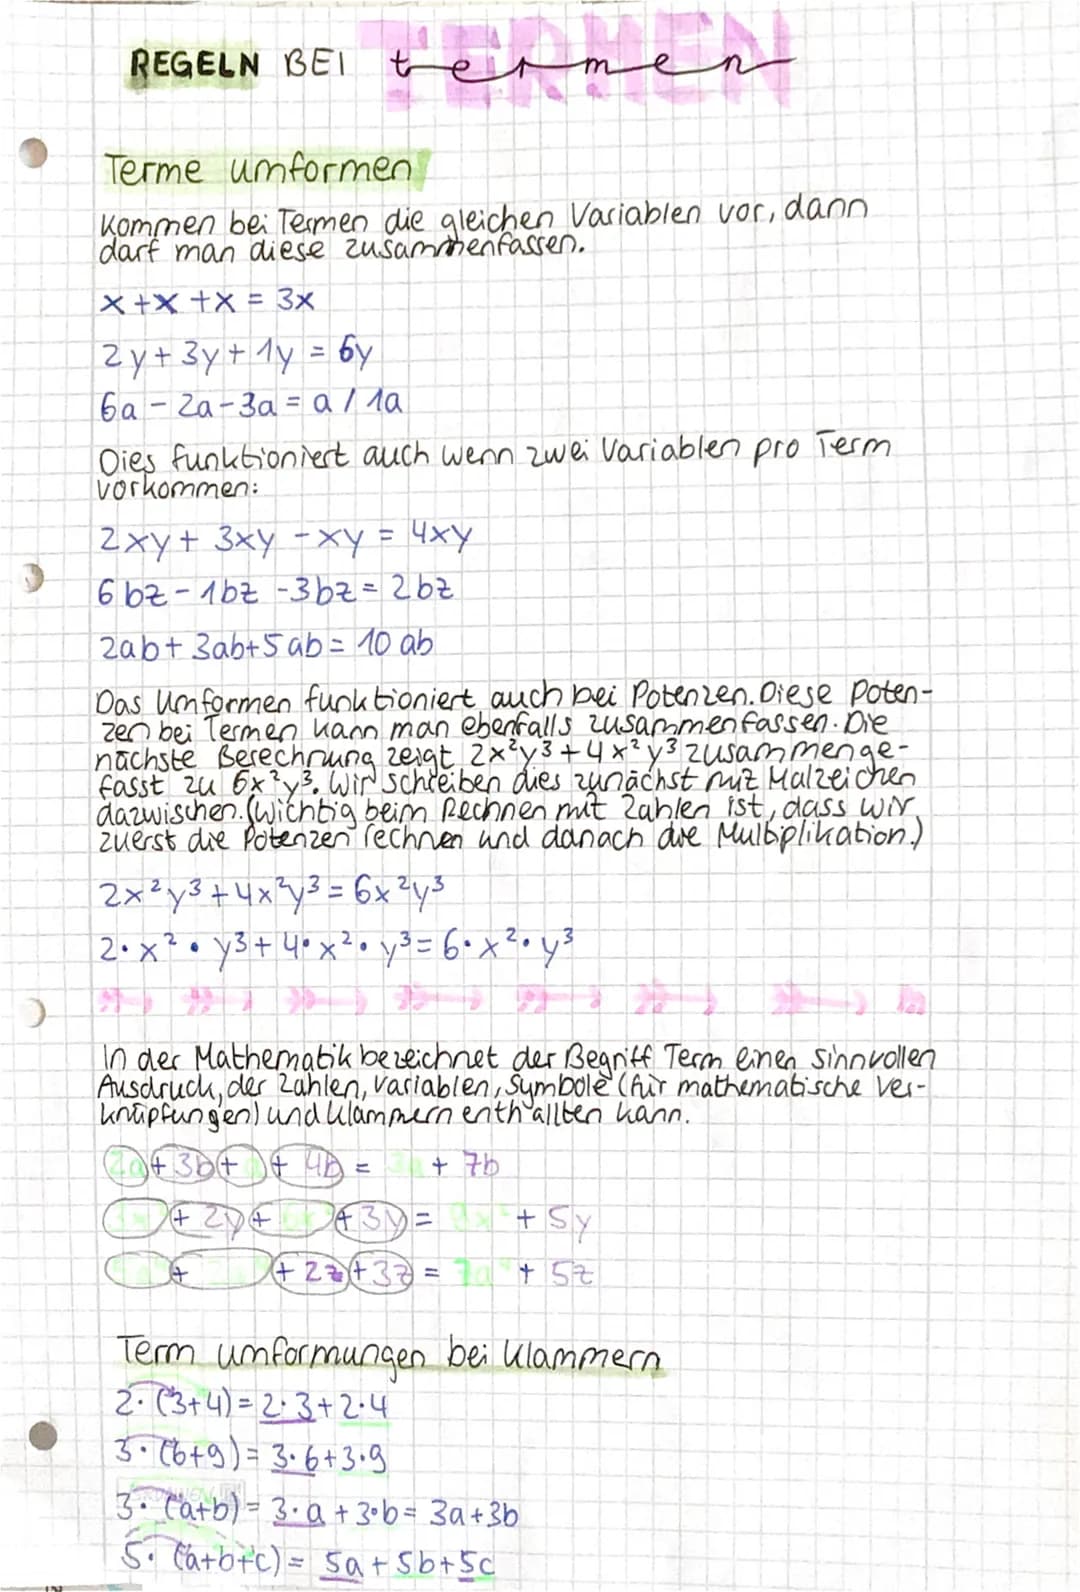 REGELN BEI termen
TERMEN
Terme umformen
Kommen bei Termen die gleichen Variablen vor, dann
darf man diese zusammenfassen.
x + x + x = 3x
2y + 3y + 1y = 6y
6a - 2a - 3a = a / 1a
Dies funktioniert auch wenn zwei Variablen pro Term
vorkommen:
2xy + 3xy - xy = 4xy
6bz - 1bz - 3bz = 2bz
2ab + 3ab + 5ab = 10 ab
Das Umformen funktioniert auch bei Potenzen. Diese Poten-
zen bei Termen kann man ebenfalls zusammenfassen. Die
nächste Berechnung zeigt 2x²y³ + 4x²y³ zusammenge-
fasst zu 6x²y³. Wir schreiben dies zunächst mit Malzeichen
dazwischen. (Wichtig beim Rechnen mit Zahlen ist, dass wir
zuerst die Potenzen rechnen und danach die Multiplikation.)
2x²y³ + 4x²y³ = 6x²y³
2 • x² • y³ + 4 • x² • y³ = 6 • x² • y³
In der Mathematik bezeichnet der Begriff Term einen sinnvollen
Ausdruck, der Zahlen, Variablen, Symbole (für mathematische Ver-
knüpfungen) und Klammern enthallten kann.
2a + 3b + + 4b = + 7b
+ 2y + + 3y = + 5y
+ + 2z + 3z = 7a + 5z
Term umformungen bei Klammern
2 · (3+4) = 2·3 + 2·4
3 · (6+9) = 3·6 + 3·9
3 · (a+b) = 3·a + 3·b = 3a + 3b
5 · (a+b+c) = 5a + 5b + 5c